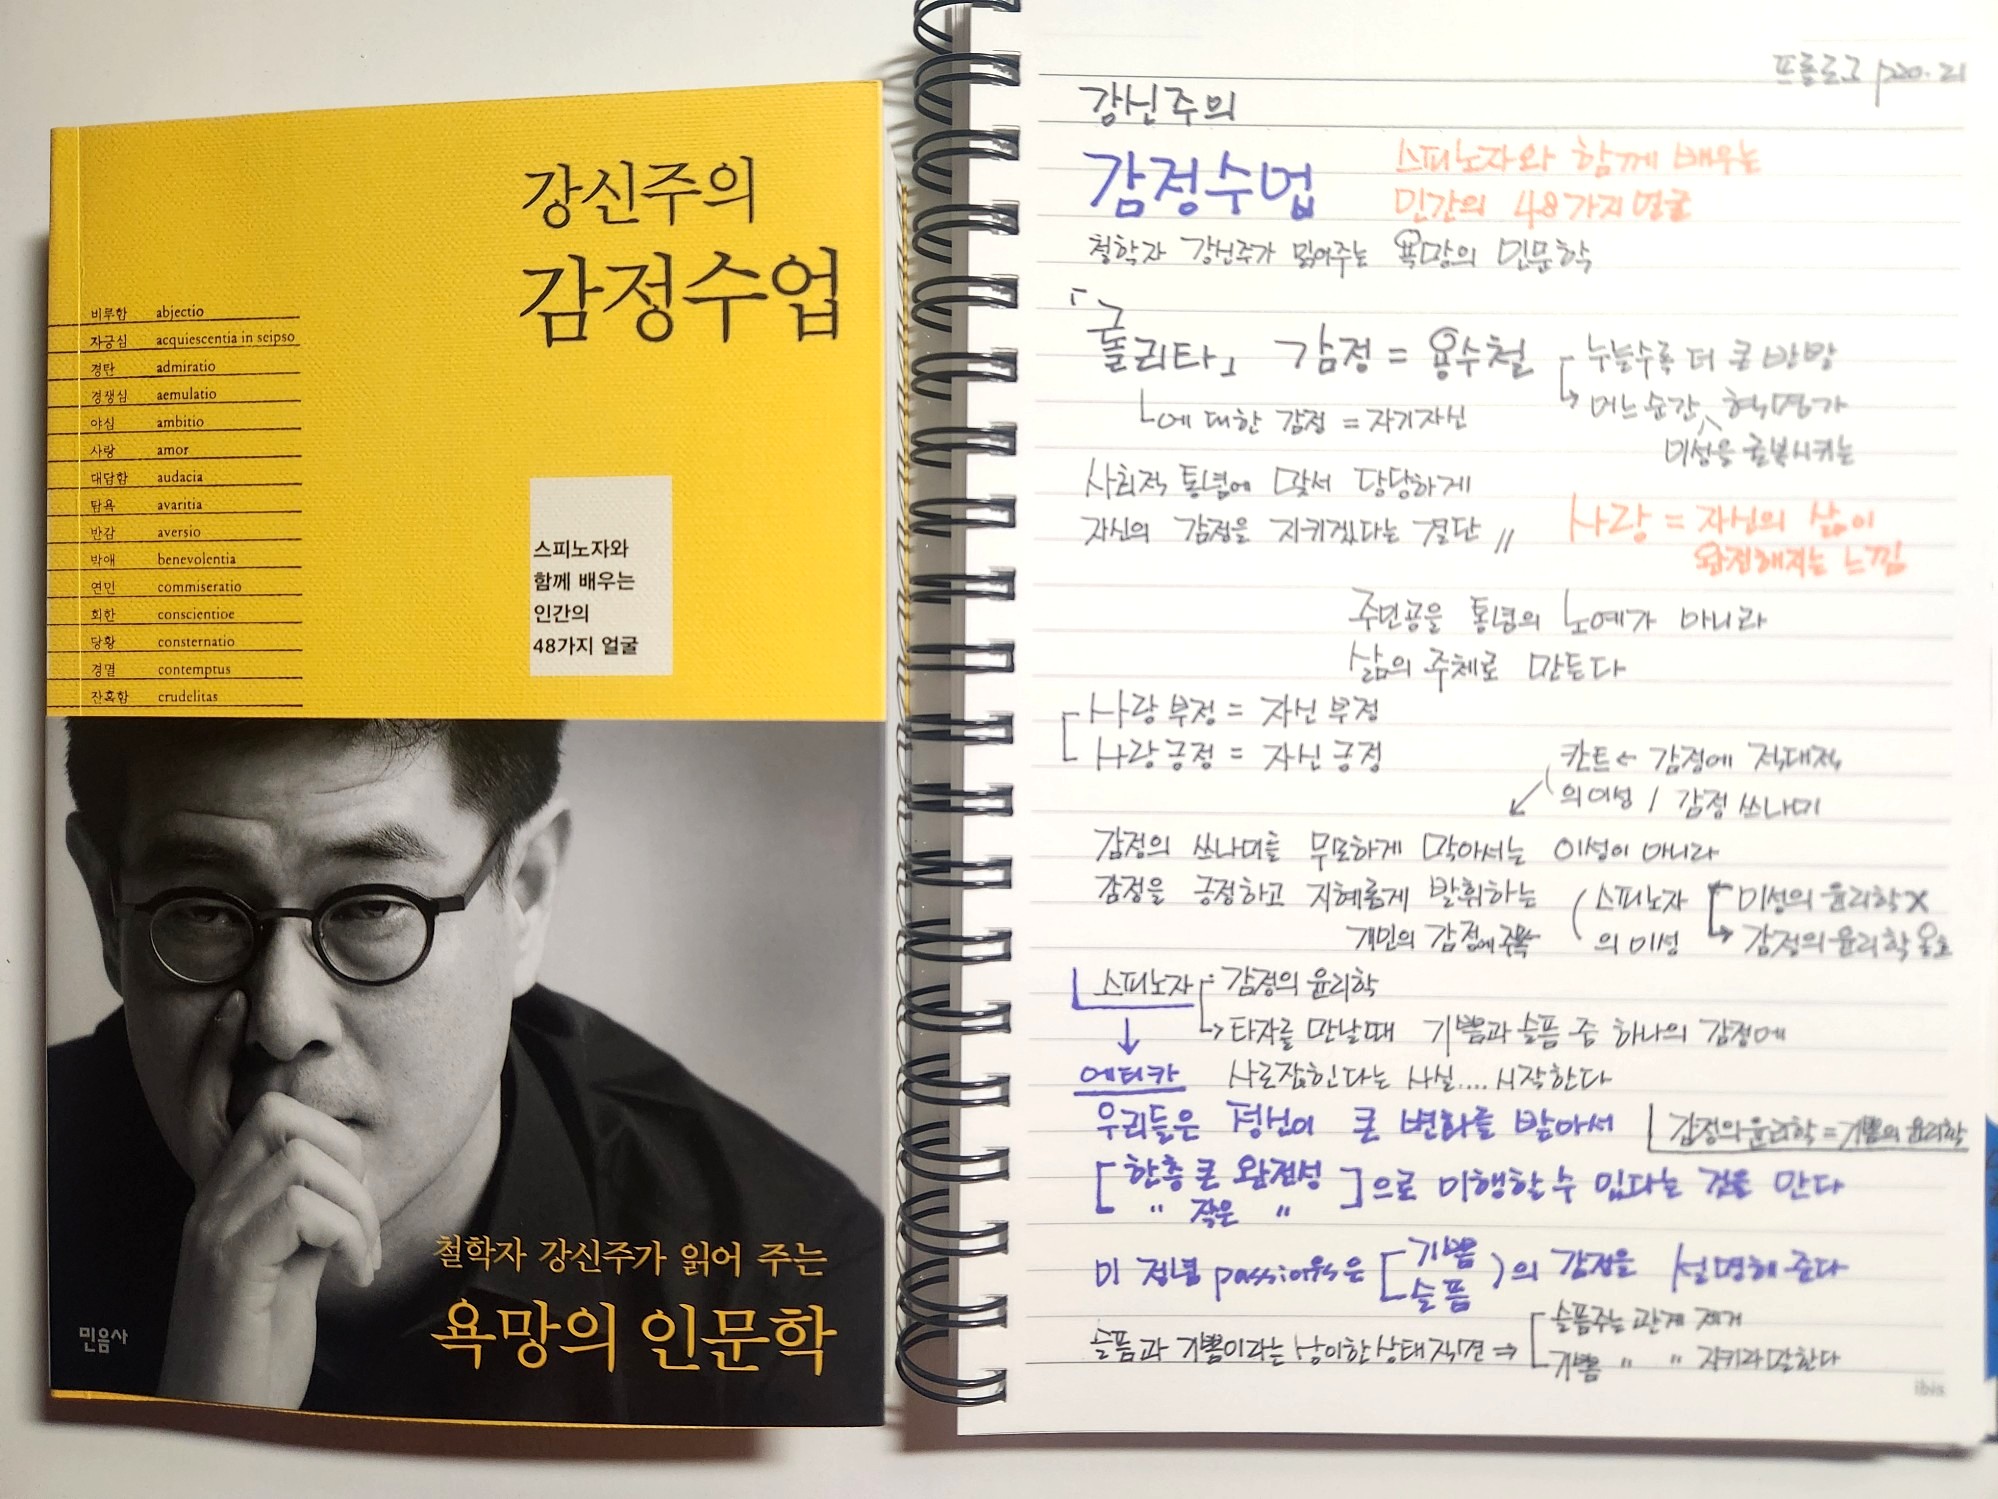 강신주의
감정수업
비루함 abjectio
자긍심 acquiescentia in seipso
경탄 admiratio
경쟁심 aemulatio
야심 ambitio
사랑 amor
대담함 audacia
탐욕 avaritia
반감 aversio
박애 benevolentia
연민 commiseratio
회한 conscientioe
당황 consternatio
경멸 contemptus
잔혹함 crudelitas
스피노자와
함께 배우는
인간의
48가지 얼굴
철학자 강신주가 읽어 주는
욕망의 인문학
민음사
프롤로그 p20.21
강신주의
감정수업
스피노자와 함께 배우는
인간의 48가지 얼굴
철학자 강신주가 읽어주는 욕망의 인문학
「롤리타」 감정 = 용수철
누늘수록 더 큰 반발
어느순간 혁명가
이성을 굴복시키는
에 대한 감정 = 자기자신
사회적 통념에 맞서 당당하게
자신의 감정을 지키겠다는 결단 //
사랑 = 자신의 삶이
완전해지는 느낌
주인공을 통념의 노예가 아니라
삶의 주체로 만든다
사랑 부정 = 자신 부정
사랑긍정 = 자신 긍정
칸트 ← 감정에 적대적
의 이성 / 감정 쓰나미
감정의 쓰나미를 무모하게 막아서는 이성이 아니라
감정을 긍정하고 지혜롭게 발휘하는
스피노자
의 이성
이성의 윤리학 X
감정의 윤리학 옹호
개인의 감정에 주목
스피노자 : 감정의 윤리학
→ 타자를 만날때 기쁨과 슬픔 중 하나의 감정에
사로잡힌다는 사실.... 시작한다
에티카
우리들은 정신이 큰 변화를 받아서
감정의 윤리학 = 기쁨의 윤리학
[한층 큰 완전성
" 작은 "]으로 이행할 수 있다는 것을 안다
이 정념 passiones은 [기쁨
슬픔)의 감정을 설명해 준다
슬픔과 기쁨이라는 상이한 상태 직면 ⇒
슬픔주는 관계 제거
기쁨 " " 지키라 말한다
ibis